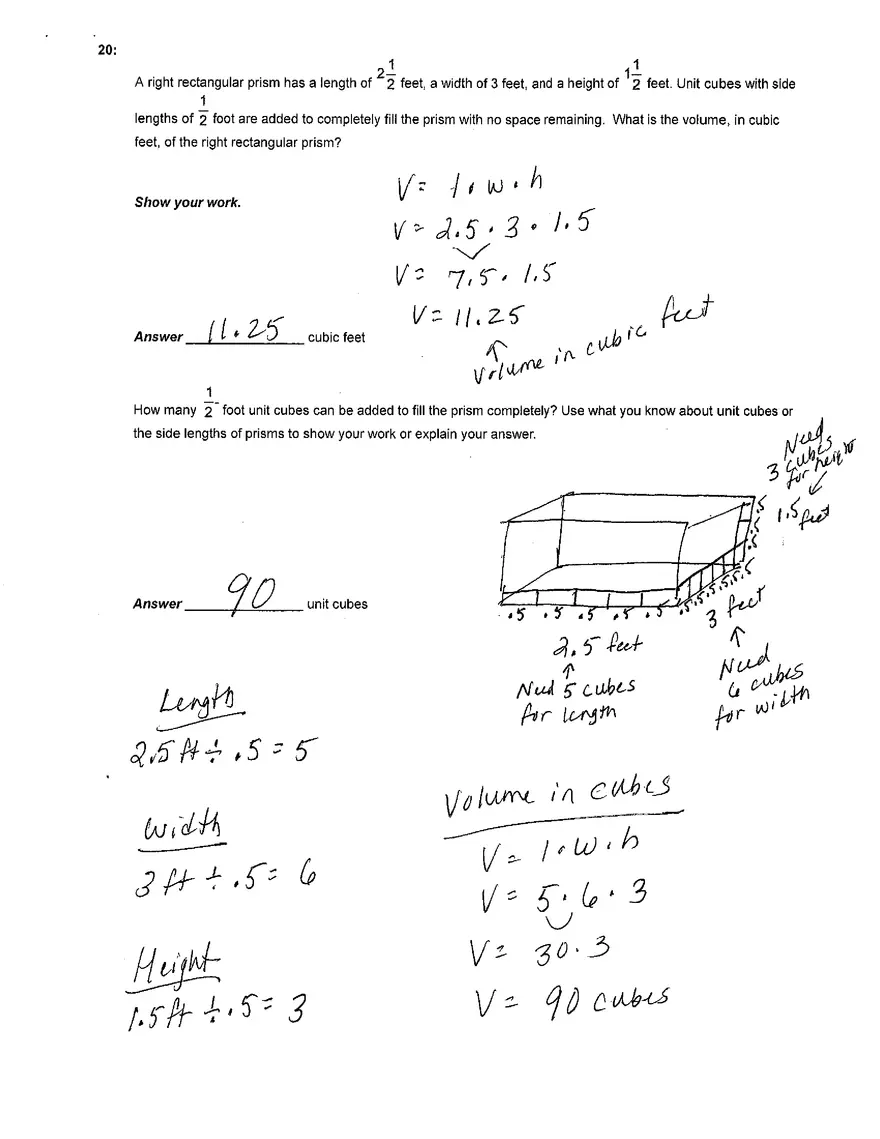 20:
A right rectangular prism has a length of 2 1/2 feet, a width of 3 feet, and a height of 1 1/2 feet. Unit cubes with side
lengths of 1/2 foot are added to completely fill the prism with no space remaining. What is the volume, in cubic
feet, of the right rectangular prism?
Show your work.
V = l · w · h
V = 2.5 · 3 · 1.5
V = 7.5 · 1.5
V = 11.25
↑
Volume in cubic feet
Answer 11.25 cubic feet
How many 1/2-foot unit cubes can be added to fill the prism completely? Use what you know about unit cubes or
the side lengths of prisms to show your work or explain your answer.
Need
3 cubes
for height
1.5
feet
.5
.5
.5
.5 .5 .5 .5 .5
.5 .5 .5 .5 .5 .5
2.5 feet
↑
Need 5 cubes
for length
3 feet
↑
Need
6 cubes
for width
Answer 90 unit cubes
Length
2.5 ft ÷ .5 = 5
Width
3 ft ÷ .5 = 6
Height
1.5 ft ÷ .5 = 3
Volume in cubes
V = l · w · h
V = 5 · 6 · 3
V = 30 · 3
V = 90 cubes